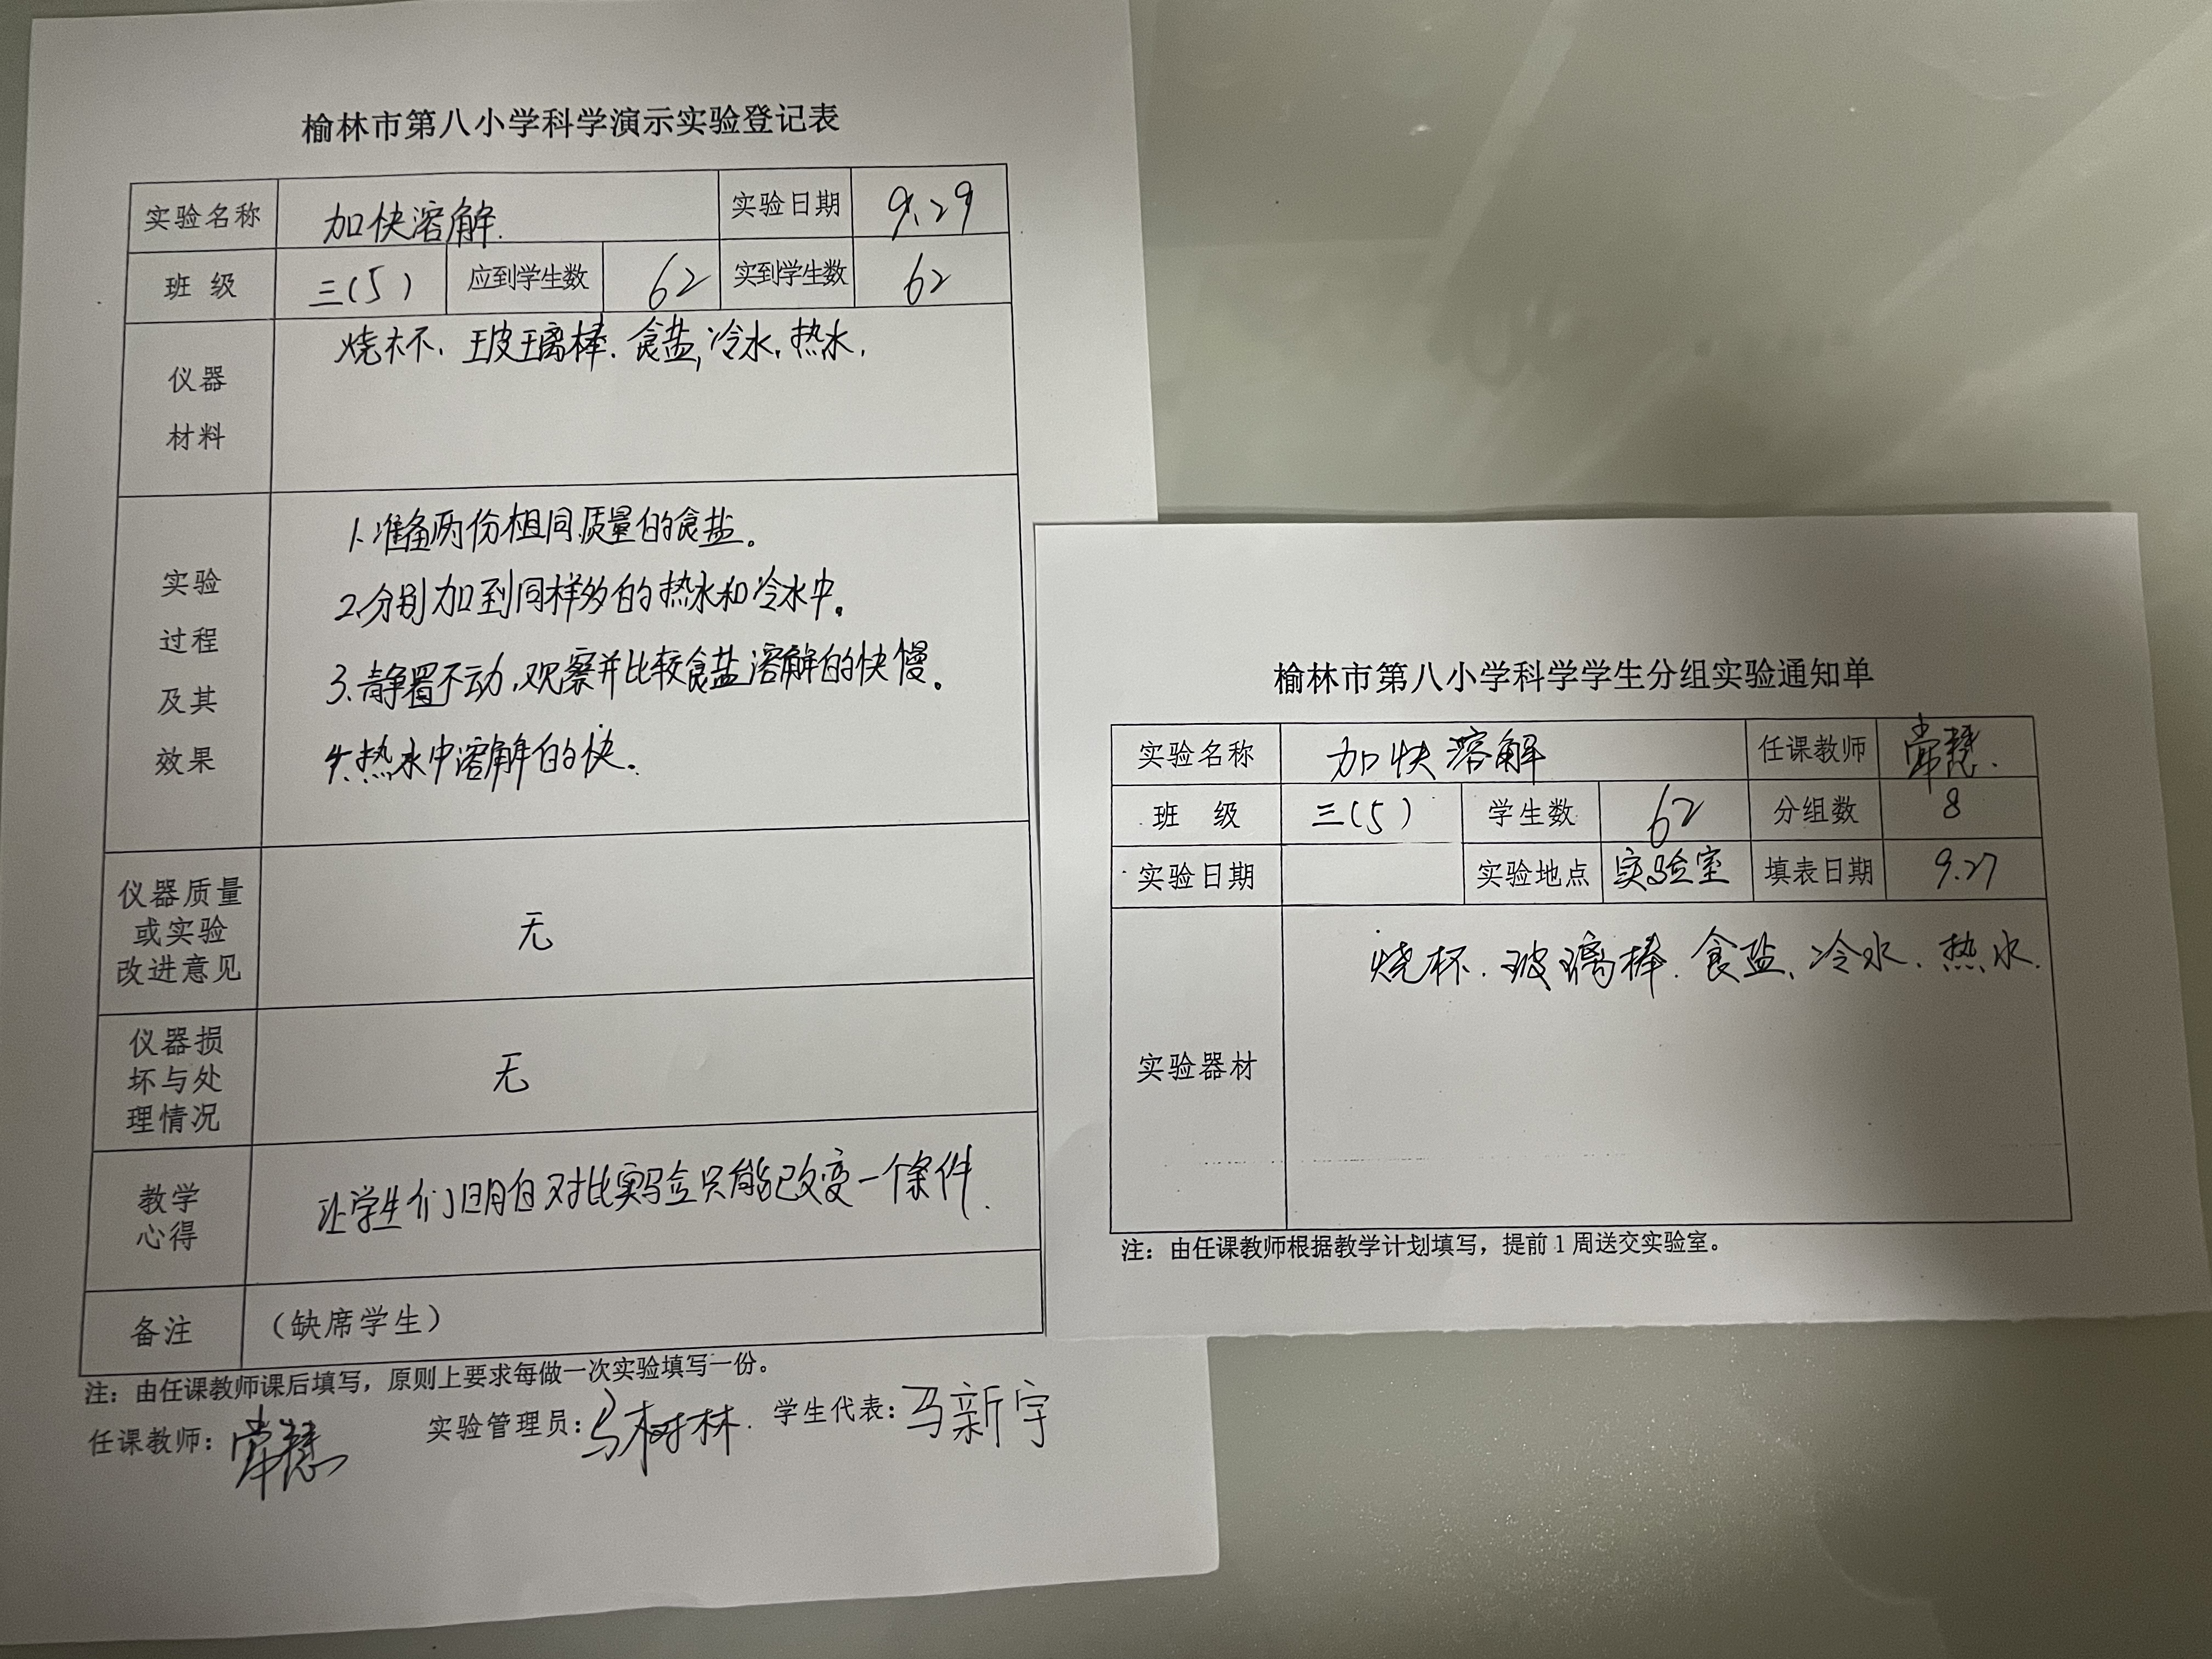 榆林市第八小学科学演示实验登记表
实验名称 加快溶解. 实验日期 9.29
班 级 三(5) 应到学生数 62 实到学生数 62
仪器
材料
烧杯、玻璃棒.食盐,冷水.热水.
实验
过程
及其
效果
1.准备两份相同质量的食盐。
2.分别加到同样多的热水和冷水中。
3.静置不动,观察并比较食盐溶解的快慢。
4.热水中溶解的快。
仪器质量
或实验
改进意见
无
仪器损
坏与处
理情况
无
教学
心得
让学生们明白对比实验只能改变一个条件.
备注 (缺席学生)
注：由任课教师课后填写，原则上要求每做一次实验填写一份。
任课教师：常慧 实验管理员：马树林. 学生代表：马新宇
榆林市第八小学科学学生分组实验通知单
实验名称 加快溶解 任课教师 常慧.
班 级 三(5) 学生数 62 分组数 8
实验日期 实验地点 实验室 填表日期 9.27
实验器材
烧杯.玻璃棒.食盐、冷水.热水.
注：由任课教师根据教学计划填写，提前1周送交实验室。